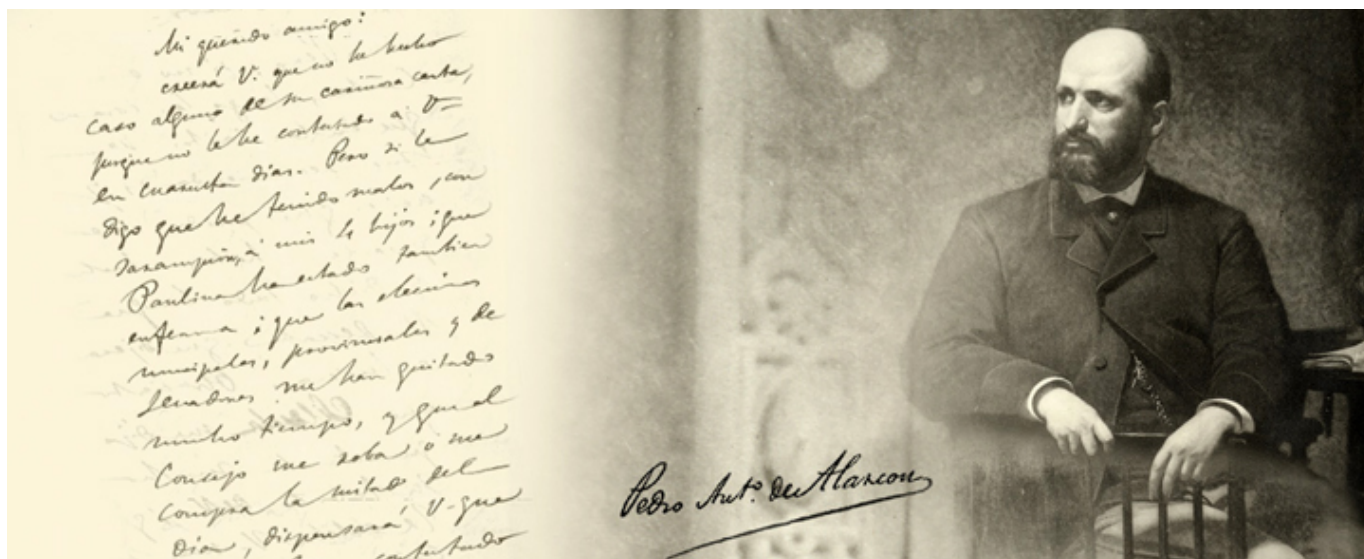 Mi querido amigo:
creerá V. que no he hecho
caso alguno de su cariñosa carta,
porque no le he contestado a V–
en cuarenta dias. Pero si le
digo que he tenido malos, con
Sarampion, á mis 4 hijos; que
Paulina ha estado tambien
enferma; que las elecciones
municipales, provinciales y de
Senadores me han quitado
mucho tiempo, y que el
Consejo me roba ó me
compra la mitad del
dia, dispensará V. que
contestado
Pedro Ant.º de Alarcon